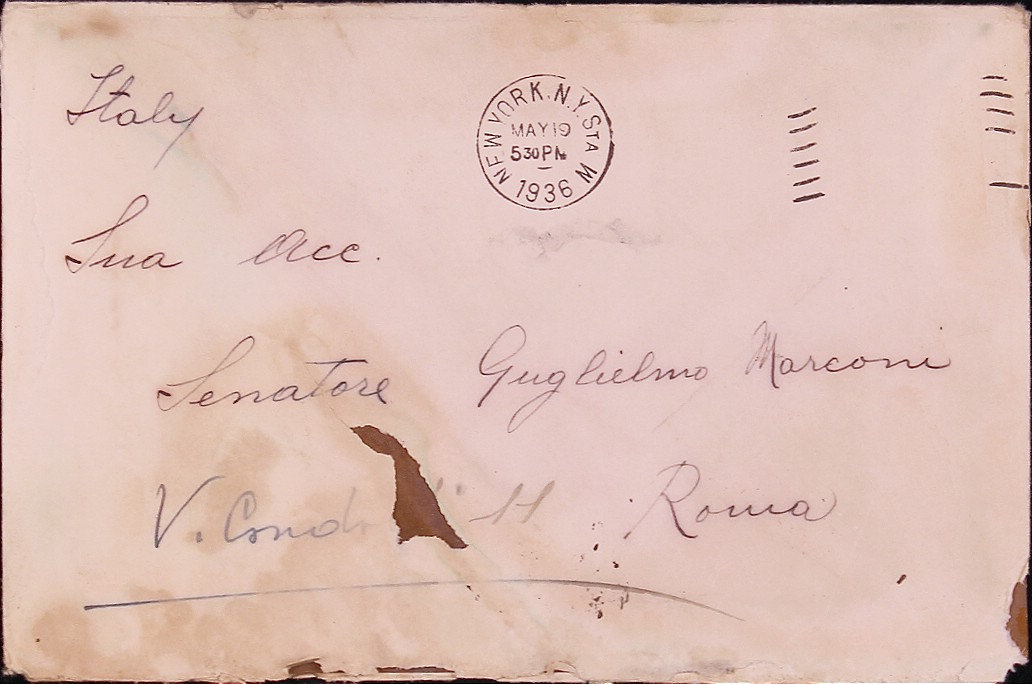 Italy
NEW YORK, N.Y. STA W
MAY 19
530 PM
1936
Sua Acc.
Senatore Guglielmo Marconi
V. Cond 11 Roma